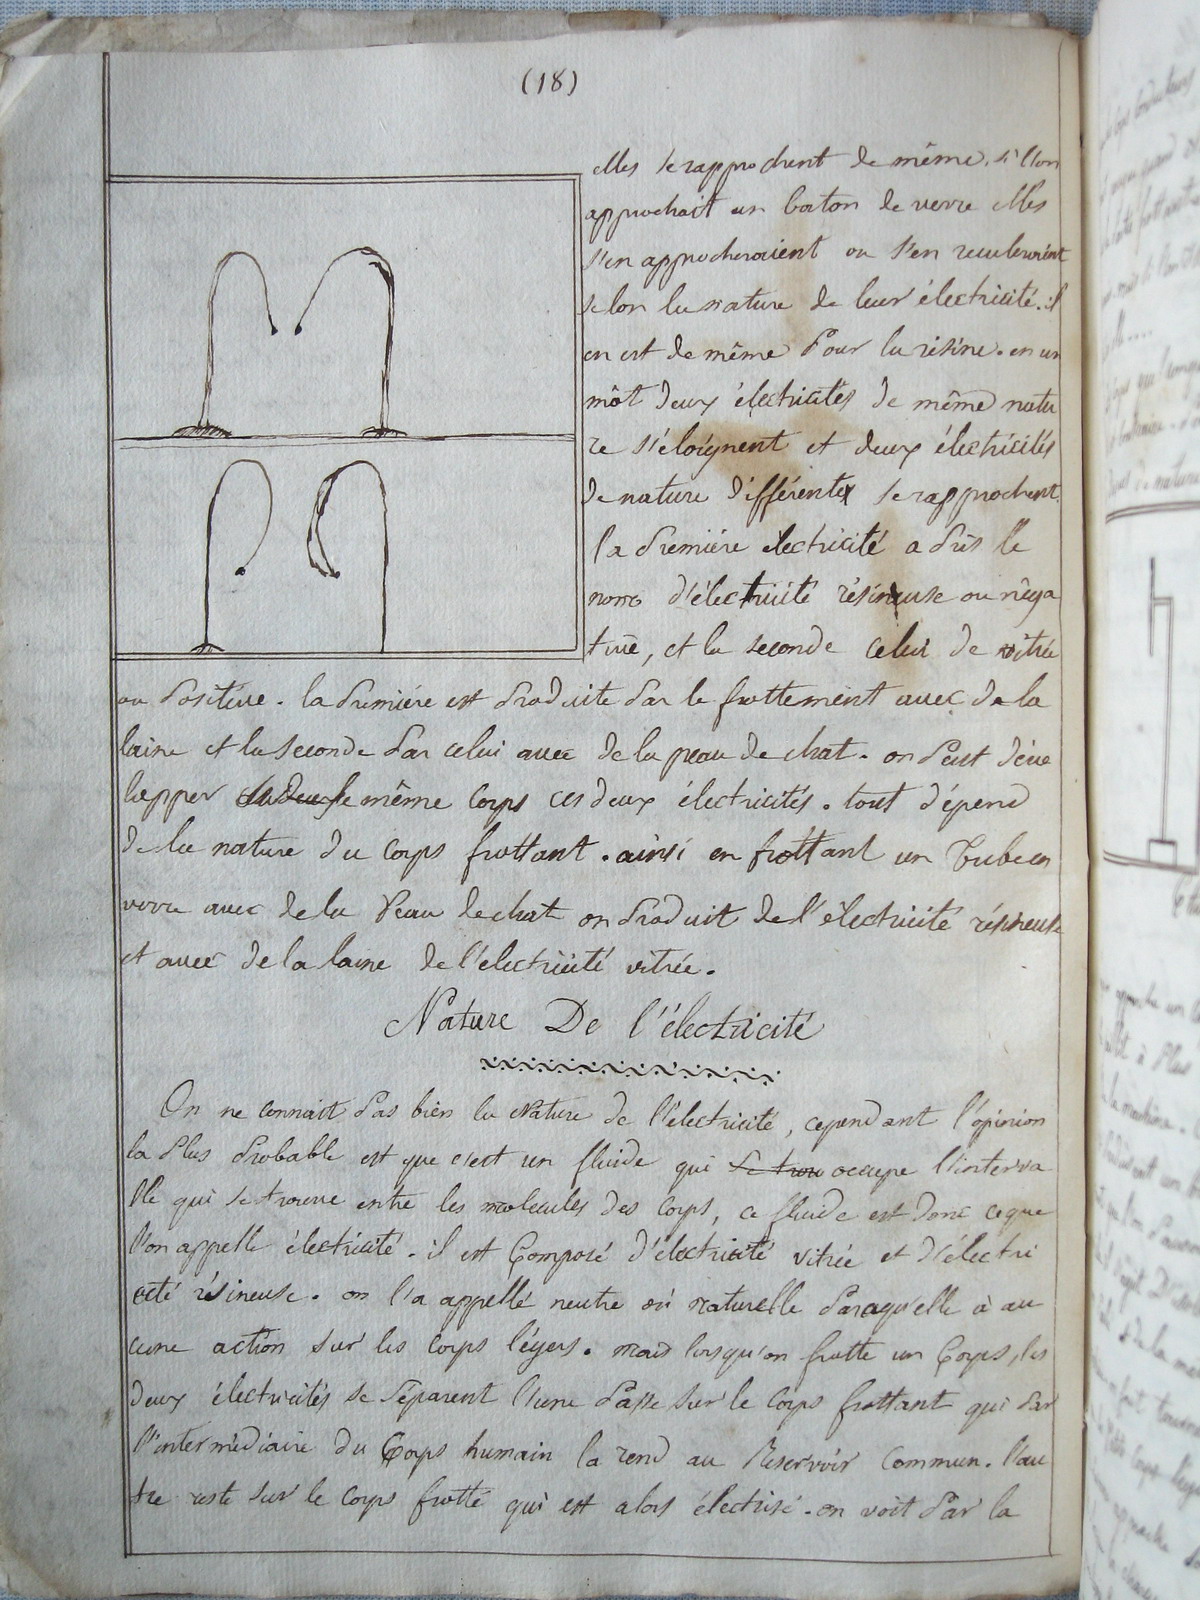 (18)
elles se rapprochent de même. si l'on
approchait un baton de verre elles
s'en approcheraient ou s'en reculeraient
selon la nature de leur électricité. il
en est de même Pour la résine. en un
môt deux électricités de même natu
re s'éloignent et deux électricités
de nature différente se rapprochent.
la Premiére électricité a Pris le
nom d'électricité résineuse ou néga
tive, et la seconde celui de vitrée
ou Positive. la Premiére est Produite Par le frottement avec de la
laine et la seconde Par celui avec de la peau de chat. on Peut déve
lopper le même Corps ces deux électricités. tout dépend
de la nature du Corps frottant. ainsi en frottant un Tube en
verre avec de la Peau de chat on Produit de l'électricité résineuse
et avec de la laine de l'électricité vitrée.
Nature De l'électricité
On ne connait Pas bien la Nature de l'électricité, cependant l'opinion
la Plus Probable est que c'est un fluide qui se trou occupe l'interva
lle qui se trouve entre les molecules des Corps, ce fluide est donc ce que
l'on appelle électricité. il est Composé d'électricité vitrée et d'électri
cité résineuse. on l'a appellé neutre ou naturelle Parcequ'elle à au
cune action sur les Corps légers. mais lorsqu'on frotte un Corps, les
deux électricités se séparent l'une Passe sur le Corps frottant qui Par
l'intermédiaire du Corps humain la rend au Reservoir Commun. l'au
tre reste sur le Corps frotté qui est alors électrisé. on voit Par la